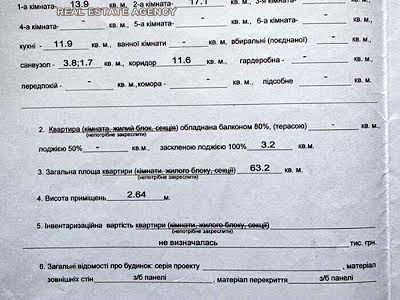 1-а кімната- 13.9 кв. м, 2-а кімната- 17.1 кв. м, 3-я кімната- кв. м,
REAL ESTATE AGENCY
4-а кімната- - кв. м, 5-а кімната- - кв. м, 6-а кімната- - кв. м,
кухні - 11.9 кв. м, ванної кімнати - кв. м, вбиральні (поєднаної) - кв. м,
санвузол - 3.8;1.7 кв. м, коридор 11.6 кв. м, гардеробна - - кв. м,
передпокій - - кв.м ,комора - - кв. м, підсобне - кв. м,
2. Квартира (кімната, жилий блок, секція) обладнана балконом 80%, (терасою) - кв. м.,
(непотрібне закреслити)
лоджією 50% - кв. м., заскленою лоджією 100% 3.2 кв.м.
3. Загальна площа квартири (кімнати, жилого блоку, секції) 63.2 кв.м.
(непотрібне закреслити)
4. Висота приміщень 2.64 м.
5. Інвентаризаційна вартість квартири (кімнати, жилого блоку, секції)
(непотрібне закреслити)
не визначалась тис. грн.
6. Загальні відомості про будинок: серія проекту , матеріал
зовнішніх стін з/б панелі , матеріал перекриття з/б панелі